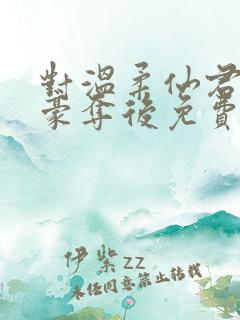 對溫柔仙君
豪奪後免費
伊柴zz
未經同意禁止轉載